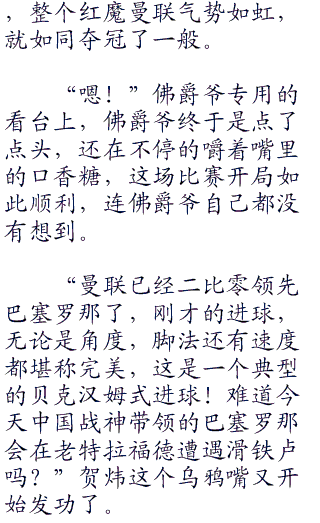 ，整个红魔曼联气势如虹，
就如同夺冠了一般。
“嗯！”佛爵爷专用的
看台上，佛爵爷终于是点了
点头，还在不停的嚼着嘴里
的口香糖，这场比赛开局如
此顺利，连佛爵爷自己都没
有想到。
“曼联已经二比零领先
巴塞罗那了，刚才的进球，
无论是角度，脚法还有速度
都堪称完美，这是一个典型
的贝克汉姆式进球！难道今
天中国战神带领的巴塞罗那
会在老特拉福德遭遇滑铁卢
吗？”贺炜这个乌鸦嘴又开
始发功了。